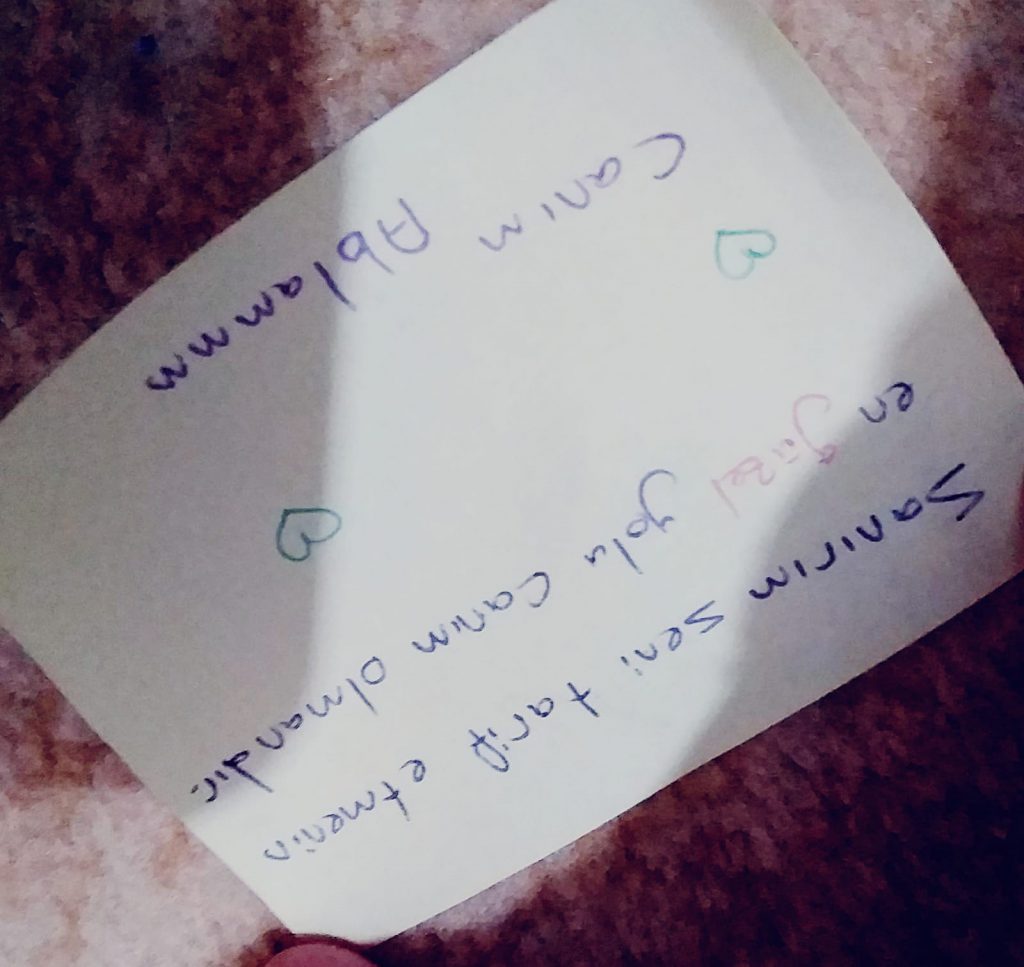 Sanırım seni tarif etmenin
en güzel yolu canım olmandır.
Canım Ablammm